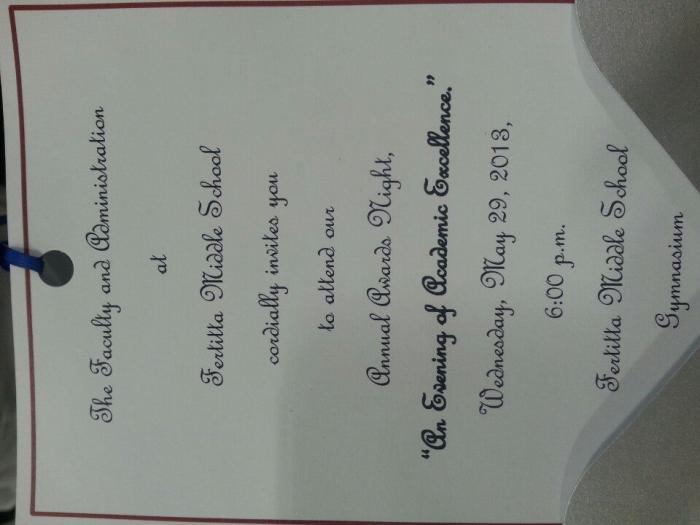 The Faculty and Administration
at
Fertitta Middle School
cordially invites you
to attend our
Annual Awards Night,
"An Evening of Academic Excellence."
Wednesday, May 29, 2013,
6:00 p.m.
Fertitta Middle School
Gymnasium